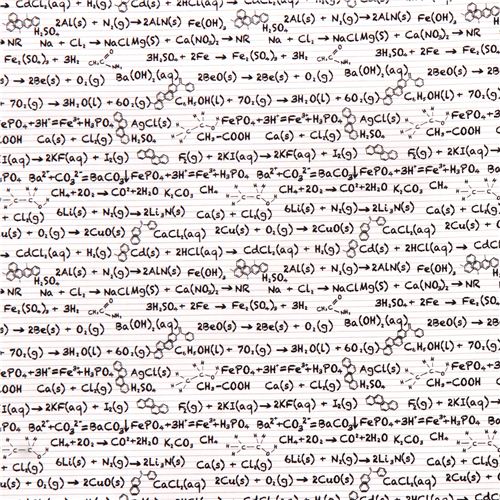 → CdCl₂(aq) + H₂(g) Cd(s) + 2HCl(aq) → CdCl₂(aq) + H₂(g) Cd(s) + 2HCl(aq) →
2Al(s) + N₂(g) → 2AlN(s) Fe(OH)₂ 2Al(s) + N₂(g) → 2AlN(s) Fe(OH)
H₂SO₄ H₂SO₄
→ NR Na + Cl₂ → NaCl Mg(s) + Ca(NO₃)₂ → NR Na + Cl₂ → NaCl Mg(s) + Ca(NO₃)₂ → NR
Fe₂(SO₄)₃ + 3H₂ CH₃C O NH₂ 3H₂SO₄ + 2Fe → Fe₂(SO₄)₃ + 3H₂ 3H₂SO₄ + 2Fe →
(s) → 2Be(s) + O₂(g) Ba(OH)₂(aq) 2BeO(s) → 2Be(s) + O₂(g) Ba(OH)₂(aq) 2BeO(s)
+ 7O₂(g) → 3H₂O(l) + 6O₂(g) C₆H₅OH(l) + 7O₂(g) → 3H₂O(l) + 6O₂(g) C₆H₅OH
FePO₄+3H⁺=Fe³⁺+H₃PO₄ AgCl(s) FePO₄+3H⁺=Fe³⁺+H₃PO₄ AgCl(s) FePO₄+3H
COOH Ca(s) + Cl₂(g) H₂SO₄ CH₃-COOH Ca(s) + Cl₂(g) H₂SO₄ CH₃-COOH
I(aq) → 2KF(aq) + I₂(g) F₂(g) + 2KI(aq) → 2KF(aq) + I₂(g) F₂(g) + 2KI(aq)
₃PO₄ Ba²⁺+CO₃²⁻=BaCO₃↓ FePO₄+3H⁺=Fe³⁺+H₃PO₄ Ba²⁺+CO₃²⁻=BaCO₃↓ FePO₄+3H⁺=Fe
CH₄+2O₂ → CO²+2H₂O K₂CO₃ CH₄ CH₄+2O₂ → CO²+2H₂O K₂CO₃ CH₄
+ Cl₂(g) 6Li(s) + N₂(g) → 2Li₃N(s) Ca(s) + Cl₂(g) 6Li(s) + N₂(g) → 2Li₃N(s) Ca(s) + Cl₂(g)
Cu(s) + O₂(g) → 2CuO(s) CaCl₂(aq) 2Cu(s) + O₂(g) → 2CuO(s) CaCl₂(aq) 2Cu(s)
→ CdCl₂(aq) + H₂(g) Cd(s) + 2HCl(aq) → CdCl₂(aq) + H₂(g) Cd(s) + 2HCl(aq) →
2Al(s) + N₂(g) → 2AlN(s) Fe(OH)₂ 2Al(s) + N₂(g) → 2AlN(s) Fe(OH)
H₂SO₄ H₂SO₄
→ NR Na + Cl₂ → NaCl Mg(s) + Ca(NO₃)₂ → NR Na + Cl₂ → NaCl Mg(s) + Ca(NO₃)₂ → NR
Fe₂(SO₄)₃ + 3H₂ CH₃C O NH₂ 3H₂SO₄ + 2Fe → Fe₂(SO₄)₃ + 3H₂ 3H₂SO₄ + 2Fe →
(s) → 2Be(s) + O₂(g) Ba(OH)₂(aq) 2BeO(s) → 2Be(s) + O₂(g) Ba(OH)₂(aq) 2BeO(s)
+ 7O₂(g) → 3H₂O(l) + 6O₂(g) C₆H₅OH(l) + 7O₂(g) → 3H₂O(l) + 6O₂(g) C₆H₅OH
FePO₄+3H⁺=Fe³⁺+H₃PO₄ AgCl(s) FePO₄+3H⁺=Fe³⁺+H₃PO₄ AgCl(s) FePO₄+3H
COOH Ca(s) + Cl₂(g) H₂SO₄ CH₃-COOH Ca(s) + Cl₂(g) H₂SO₄ CH₃-COOH
I(aq) → 2KF(aq) + I₂(g) F₂(g) + 2KI(aq) → 2KF(aq) + I₂(g) F₂(g) + 2KI(aq)
₃PO₄ Ba²⁺+CO₃²⁻=BaCO₃↓ FePO₄+3H⁺=Fe³⁺+H₃PO₄ Ba²⁺+CO₃²⁻=BaCO₃↓ FePO₄+3H⁺=Fe
CH₄+2O₂ → CO²+2H₂O K₂CO₃ CH₄ CH₄+2O₂ → CO²+2H₂O K₂CO₃ CH₄
+ Cl₂(g) 6Li(s) + N₂(g) → 2Li₃N(s) Ca(s) + Cl₂(g) 6Li(s) + N₂(g) → 2Li₃N(s) Ca(s) + Cl₂(g)
Cu(s) + O₂(g) → 2CuO(s) CaCl₂(aq) 2Cu(s) + O₂(g) → 2CuO(s) CaCl₂(aq) 2Cu(s)